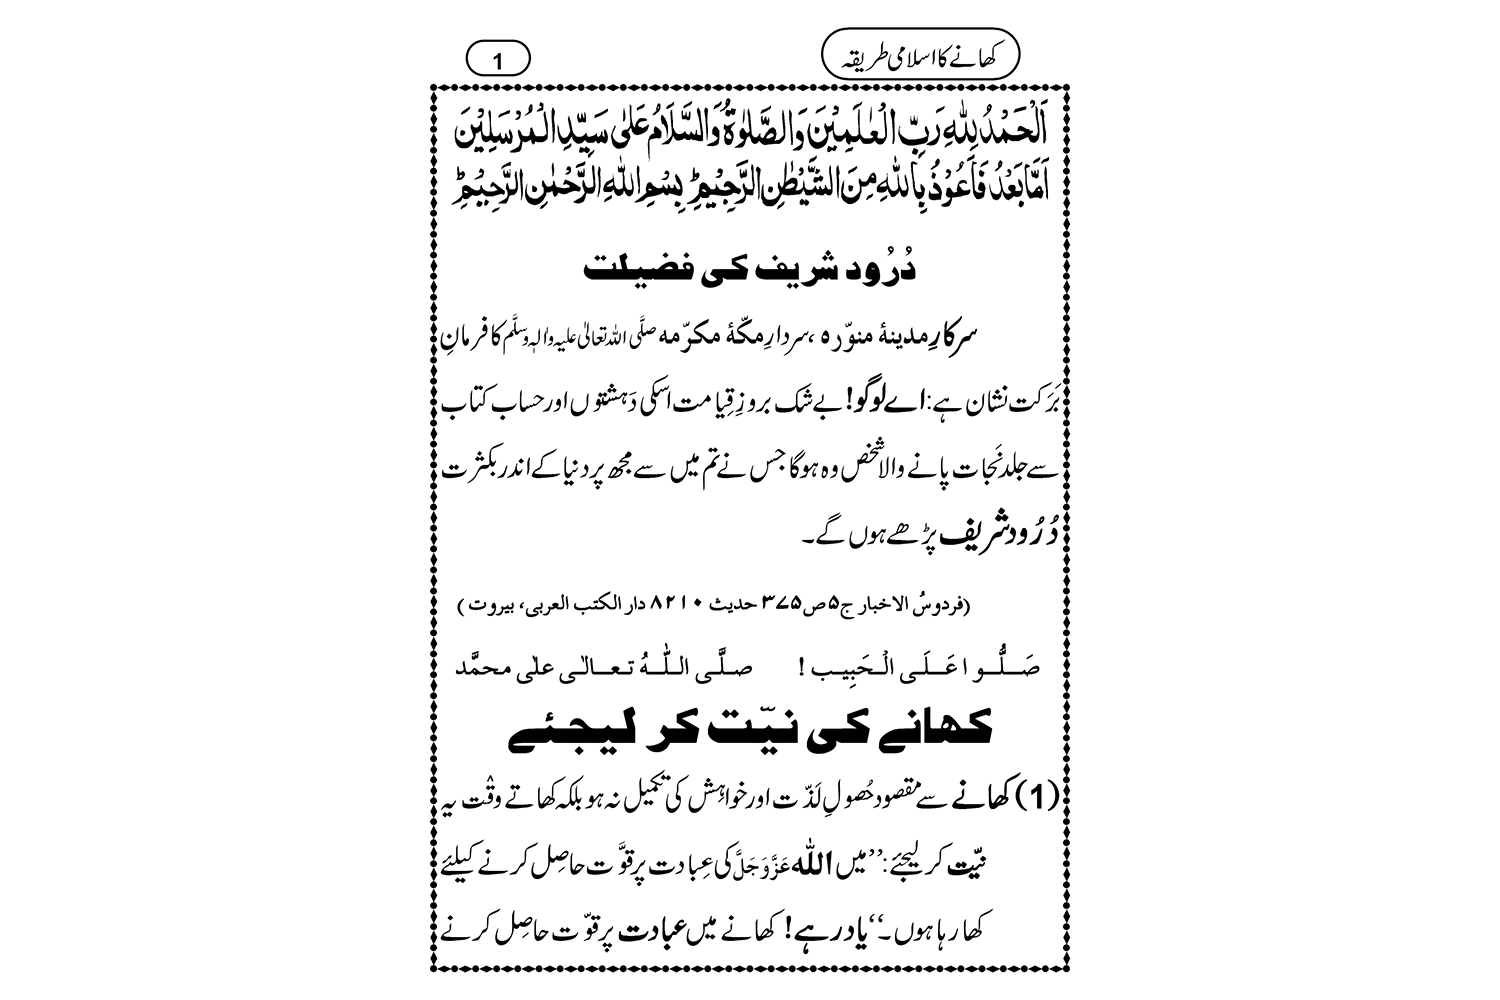 کھانے کا اسلامی طریقہ
1
اَلْحَمْدُ لِلّٰهِ رَبِّ الْعٰلَمِیْنَ وَالصَّلٰوةُ وَالسَّلَامُ عَلٰی سَیِّدِ الْمُرْسَلِیْنَ
اَمَّا بَعْدُ فَاَعُوْذُ بِاللّٰهِ مِنَ الشَّیْطٰنِ الرَّجِیْمِؕ بِسْمِ اللّٰهِ الرَّحْمٰنِ الرَّحِیْمِؕ
دُرُود شریف کی فضیلت
سرکارِ مدینۂ منوّرہ، سردارِ مکّۂ مکرّمہ صلَّی اللہ تعالٰی علیہ واٰلہٖ وسلَّم کا فرمانِ
بَرَکت نشان ہے: اے لوگو! بے شک بروزِ قِیامت اسکی دَہشتوں اور حساب کتاب
سے جلد نَجات پانے والا شخص وہ ہوگا جس نے تم میں سے مجھ پر دنیا کے اندر بکثرت
دُرُود شریف پڑھے ہوں گے۔
(فردوسُ الاخبار ج۵ص۳۷۵ حدیث ۸۲۱۰ دار الکتب العربی، بیروت)
صَلُّوا عَلَی الْحَبِیب! صلَّی اللّٰہُ تعالٰی علٰی محمَّد
کھانے کی نیّت کر لیجئے
(1) کھانے سے مقصود حُصولِ لَذّت اور خواہِش کی تکمیل نہ ہو بلکہ کھاتے وقْت یہ
نیّت کر لیجئے: ’’میں اللہ عَزَّوَجَلَّ کی عِبادت پر قوَّت حاصِل کرنے کیلئے
کھا رہا ہوں۔‘‘ یاد رہے! کھانے میں عبادت پر قوّت حاصِل کرنے